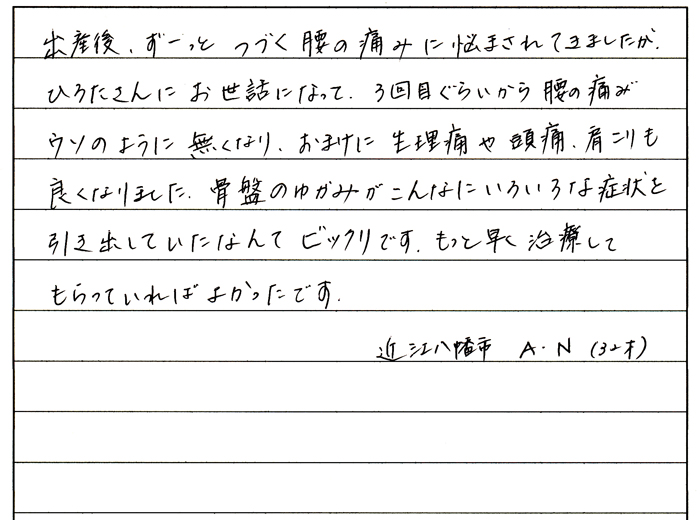 出産後、ずーっと つづく腰の痛みに悩まされてきましたが、
ひろたさんに お世話になって、3回目ぐらいから 腰の痛みが
ウソのように 無くなり、おまけに 生理痛や 頭痛、肩こりも
良くなりました。骨盤のゆがみが こんなにいろいろな症状を
引き出していたなんて ビックリです。もっと早く 治療して
もらっていれば よかったです。
近江八幡市 A・N (32才)